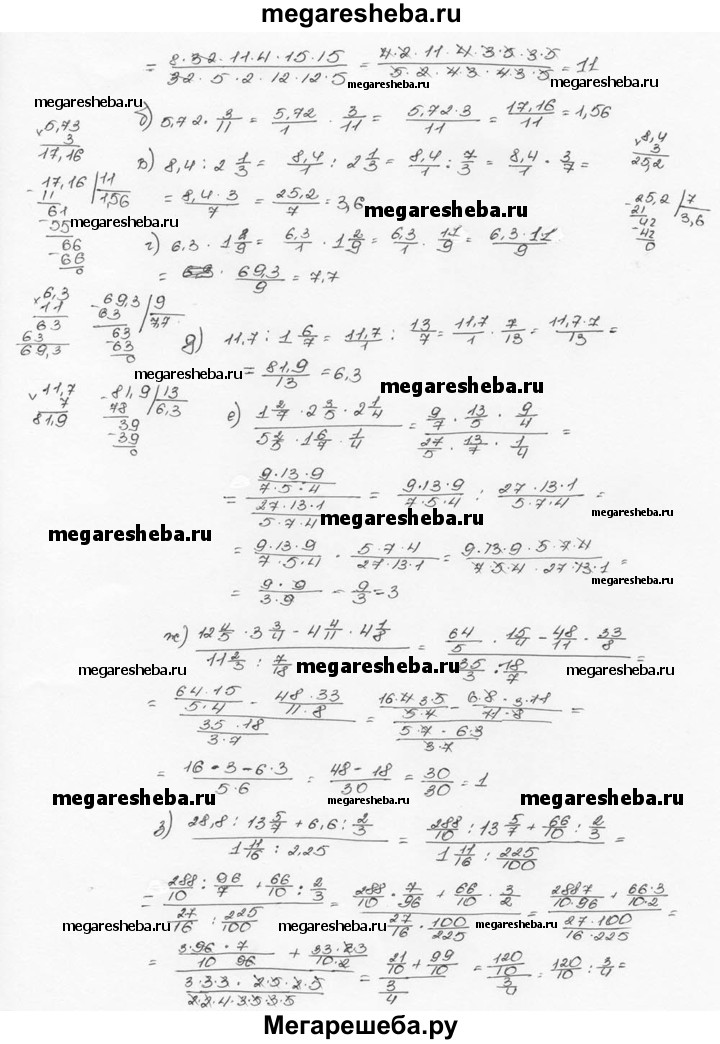 megaresheba.ru
= 8·32·11·4·15·15 / 32·5·2·12·12·5 = 4·2·11·4·3·5·3·5 / 5·2·4·3·4·3·5 = 11
megaresheba.ru
megaresheba.ru megaresheba.ru
б) 5,72 · 3/11 = 5,72/1 · 3/11 = 5,72·3/11 = 17,16/11 = 1,56
5,73
3
17,16
в) 8,4 : 2 1/3 = 8,4/1 : 2 1/3 = 8,4/1 : 7/3 = 8,4/1 · 3/7 =
8,4
3
25,2
17,16 | 11
11 1,56
61
55
66
66
0
= 8,4·3/7 = 25,2/7 = 3,6
megaresheba.ru
25,2 | 7
21 3,6
42
42
0
megaresheba.ru
г) 6,3 · 1 2/9 = 6,3/1 · 1 2/9 = 6,3/1 · 11/9 = 6,3·11/9
= 69,3/9 = 7,7
6,3
11
63
63
69,3
69,3 | 9
63 7,7
63
63
0
д) 11,7 : 1 6/7 = 11,7/1 : 13/7 = 11,7/1 · 7/13 = 11,7·7/13 =
= 81,9/13 = 6,3
megaresheba.ru
11,7
7
81,9
81,9 | 13
78 6,3
39
39
0
е) 1 2/7 · 2 3/5 · 2 1/4 / 5 2/5 · 1 6/7 · 1/4 = 9/7 · 13/5 · 9/4 / 27/5 · 13/7 · 1/4 =
= 9·13·9/7·5·4 / 27·13·1/5·7·4 = 9·13·9/7·5·4 : 27·13·1/5·7·4 =
megaresheba.ru megaresheba.ru megaresheba.ru
= 9·13·9/7·5·4 · 5·7·4/27·13·1 = 9·13·9·5·7·4/7·5·4·27·13·1 =
megaresheba.ru
= 9·9/3·9 = 9/3 = 3
ж) 12 4/5 · 3 3/4 - 4 4/11 · 4 1/8 / 11 2/3 : 7/18 = 64/5 · 15/4 - 48/11 · 33/8 / 35/3 · 18/7 =
megaresheba.ru megaresheba.ru megaresheba.ru
= 64·15/5·4 - 48·33/11·8 / 35·18/3·7 = 16·4·3·5/5·4 - 6·8·3·11/11·8 / 5·7·6·3/3·7 =
= 16·3-6·3 / 5·6 = 48-18/30 = 30/30 = 1
megaresheba.ru megaresheba.ru megaresheba.ru
з) 28,8 : 13 5/7 + 6,6 : 2/3 / 1 11/16 : 2,25 = 288/10 : 13 5/7 + 66/10 : 2/3 / 1 11/16 : 225/100 =
= 288/10 : 96/7 + 66/10 : 2/3 / 27/16 : 225/100 = 288/10 · 7/96 + 66/10 · 3/2 / 27/16 · 100/225 = 288 7/10·96 + 66·3/10·2 / 27·100/16·225 =
megaresheba.ru megaresheba.ru megaresheba.ru
= 3·96·7/10 96 + 33·2·3/10·2 / 3·3·3·2·5·2·5/2·2·4·3·5·3·5 = 21/10 + 99/10 / 3/4 = 120/10 / 3/4 = 120/10 : 3/4 =
Мегарешеба.ру